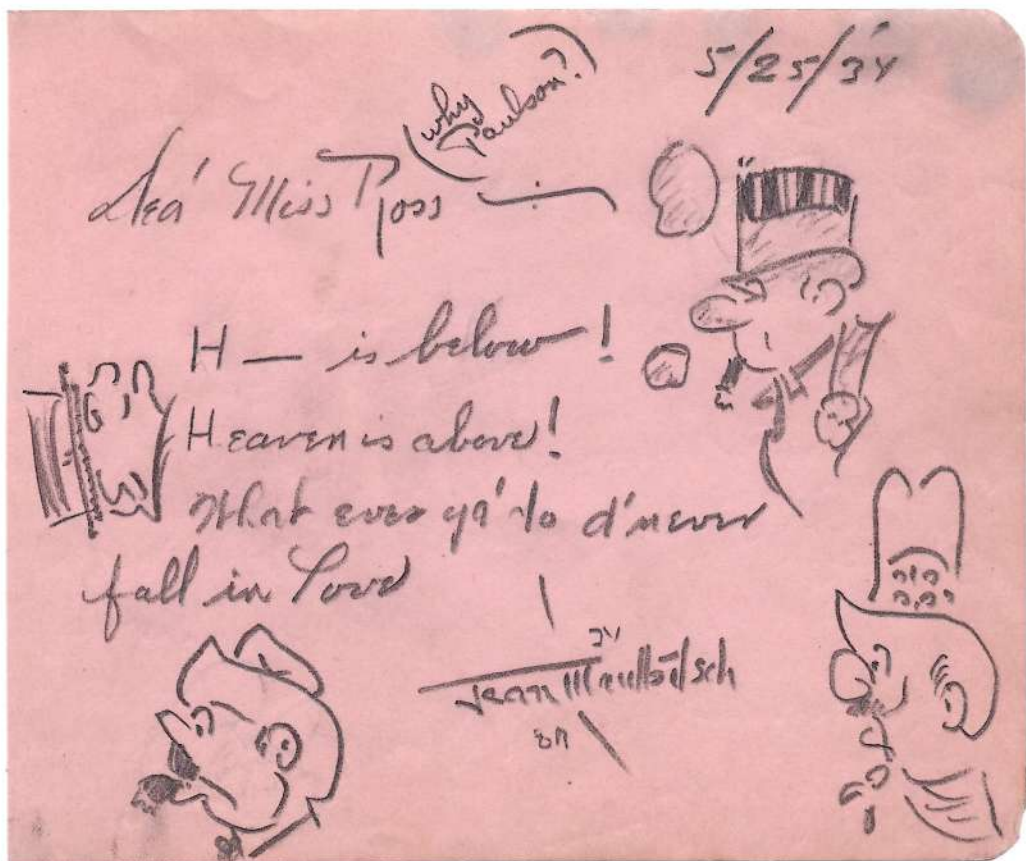 5/25/34
(why
Paulson?)
Dea' Miss Ross
H — is below!
Heaven is above!
What ever ya' do d' never
fall in Love
Jean